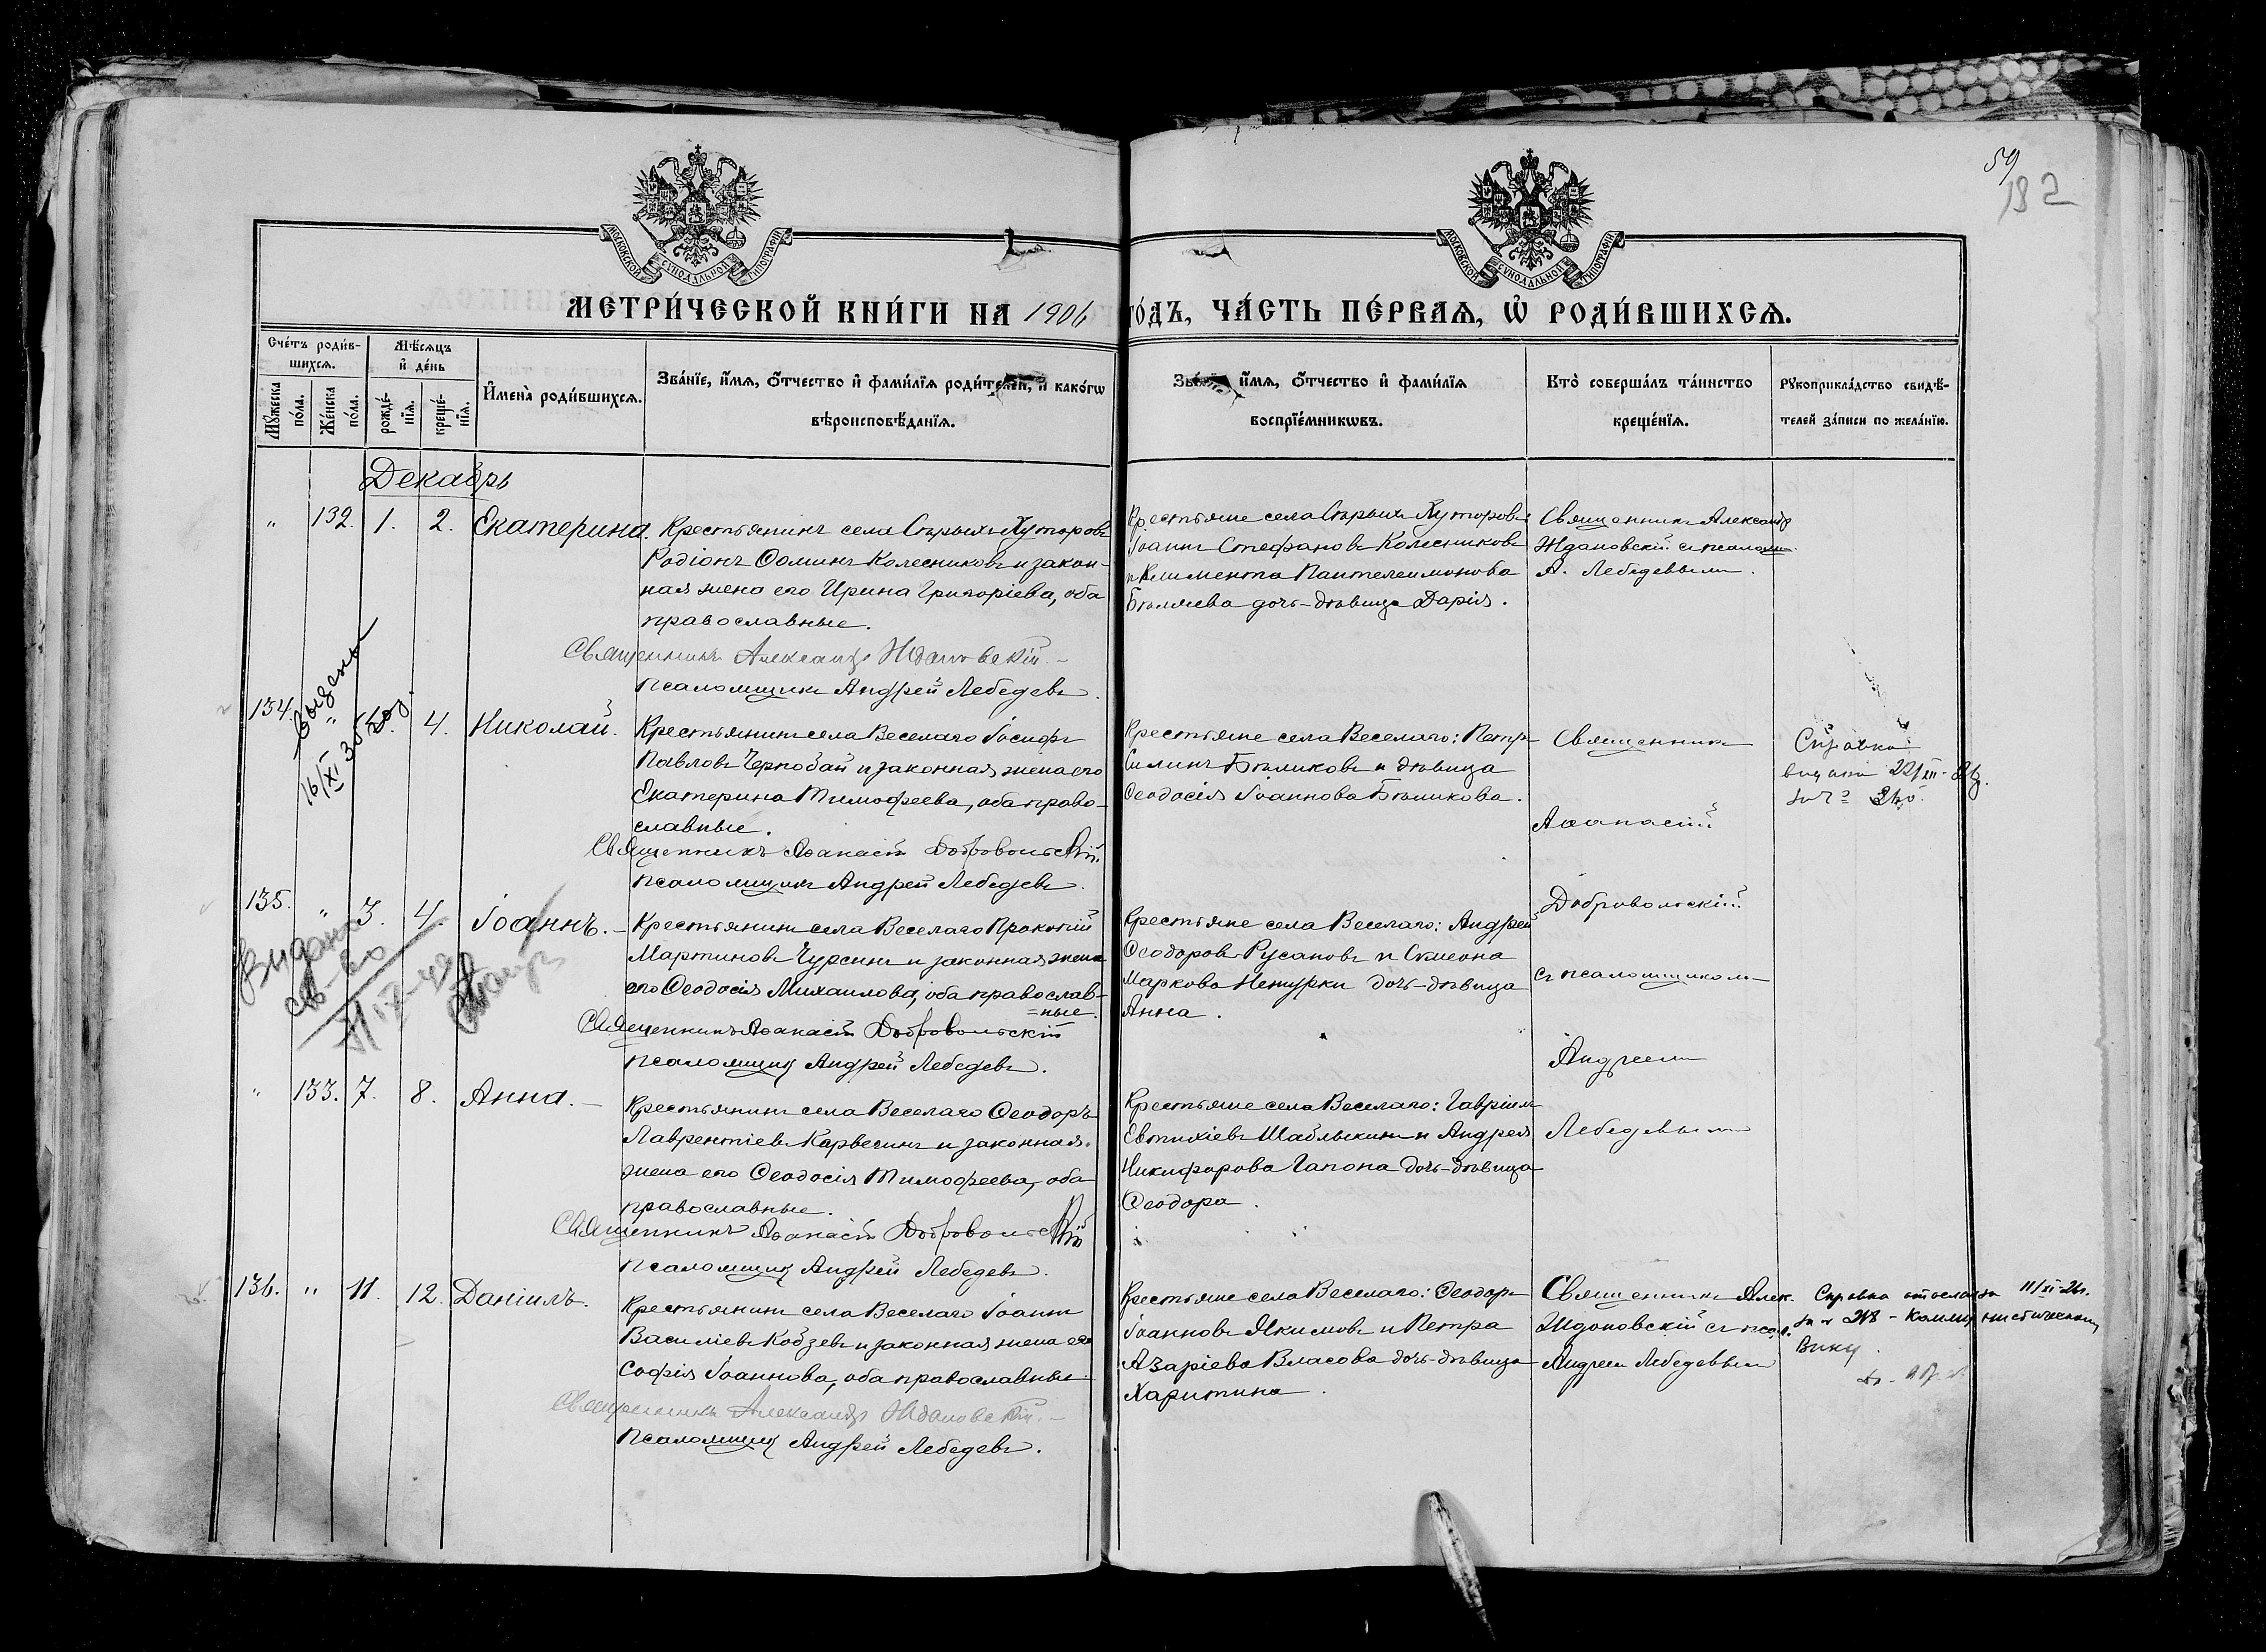 59
182
МОСКОВСКОЙ СУНОДАЛЬНОЙ ТИПОГРАФІИ
МОСКОВСКОЙ СУНОДАЛЬНОЙ ТИПОГРАФІИ
МЕТРИ́ЧЕСКОЙ КНИ́ГИ НА 1906 ГО́ДЪ, ЧА́СТЬ ПЕ́РВАѦ, Ѡ҆ РОДИ́ВШИХСѦ.
Сче́тъ роди́в-
шихсѧ.
Мꙋ́жеска
по́ла.
Же́нска
по́ла.
Мѣ́сѧцъ
и҆ де́нь
рожде́-
нїѧ.
креще́-
нїѧ.
И҆мена̀ роди́вшихсѧ.
Зва́нїе, и҆́мѧ, ѻ҆́тчество и҆ фами́лїѧ роди́телей, и҆ како́гѡ
вѣроисповѣ́данїѧ.
Зва́нїе, и҆́мѧ, ѻ҆́тчество и҆ фами́лїѧ
воспрїе́мникѡвъ.
Кто̀ соверша́лъ та́инство
креще́нїѧ.
Рꙋкоприкла́дство свидѣ́-
телей за́писи по жела́нїю.
Декабрь
" 132. 1. 2. Екатерина.
Крестьянинъ села Старыхъ Хуторовъ
Родіонъ Ѳоминъ Колесниковъ и закон-
ная жена его Ирина Григоріева, оба
православные.
Священникъ Александръ Ждановскій.
Псаломщикъ Андрей Лебедевъ.
Крестьяне села Старыхъ Хуторовъ
Іоаннъ Стефановъ Колесниковъ
и Климента Пантелеимонова
Бѣляева дочь-дѣвица Дарія.
Священникъ Александръ
Ждановскій съ псалом.
А. Лебедевымъ.
134. " 4. Николай.
16/XI 30
Крестьянинъ села Веселаго Іосифъ
Павловъ Чернобай и законная жена его
Екатерина Тимофеева, оба право-
славные.
Священникъ Аѳанасій Добровольскій.
Псаломщикъ Андрей Лебедевъ.
Крестьяне села Веселаго: Петръ
Силинъ Бѣликовъ и дѣвица
Ѳеодосія Іоаннова Бѣликова.
Священникъ
Аѳанасій
Добровольскій
съ псаломщикомъ
Андреемъ
Лебедевымъ
135. " 3. 4. Іоаннъ.
Видано
Крестьянинъ села Веселаго Прокопій
Мартиновъ Чурсинъ и законная жена
его Ѳеодосія Михаилова, оба православ-
=ные.
Священникъ Аѳанасій Добровольскій
Псаломщикъ Андрей Лебедевъ.
Крестьяне села Веселаго: Андрей
Ѳеодоровъ Русановъ и Симеона
Маркова дочь-дѣвица
Анна.
" 133. 7. 8. Анна.
Крестьянинъ села Веселаго Ѳеодоръ
Лаврентіевъ Карвечинъ и законная
жена его Ѳеодосія Тимофеева, оба
православные.
Священникъ Аѳанасій Добровольскій
Псаломщикъ Андрей Лебедевъ.
Крестьяне села Веселаго: Гавріилъ
Евтихіевъ Шаблыкинъ и Андрея
Никифорова Гапона дочь-дѣвица
Ѳеодора.
136. " 11. 12. Даніилъ.
Крестьянинъ села Веселаго Іоаннъ
Василіевъ Кобзевъ и законная жена его
Софія Іоаннова, оба православные.
Священникъ Александръ Ждановскій.
Псаломщикъ Андрей Лебедевъ.
Крестьяне села Веселаго: Ѳеодоръ
Іоанновъ Якимовъ и Петра
Азаріева Власова дочь-дѣвица
Харитина.
Священникъ Алек.
Ждановскій съ псал.
Андреем Лебедевымъ